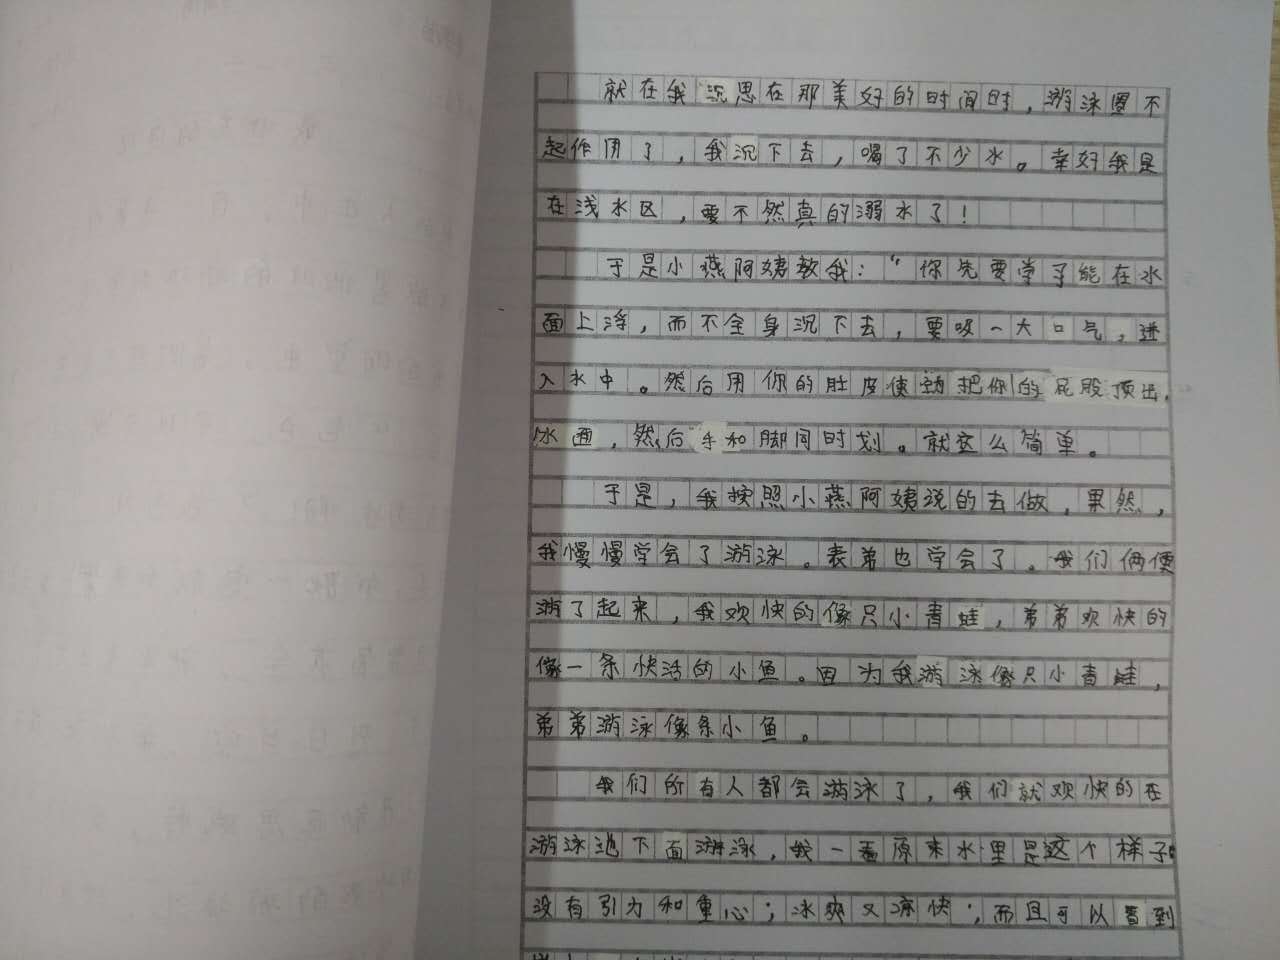 就在我沉思在那美好的时间时，游泳圈不
起作用了，我沉下去，喝了不少水。幸好我是
在浅水区，要不然真的溺水了！
于是小燕阿姨教我：“你先要学了能在水
面上浮，而不全身沉下去，要吸一大口气，进
入水中。然后用你的肚皮使劲把你的屁股顶出，
水面，然后手和脚同时划。就这么简单。
于是，我按照小燕阿姨说的去做，果然，
我慢慢学会了游泳。表弟也学会了。我们俩便
游了起来，我欢快的像只小青蛙，弟弟欢快的
像一条快活的小鱼。因为我游泳像只小青蛙，
弟弟游泳像条小鱼。
我们所有人都会游泳了，我们就欢快的在
游泳池下面游泳，我一看原来水里是这个样子
没有引力和重心；冰爽又凉快；而且可以看到